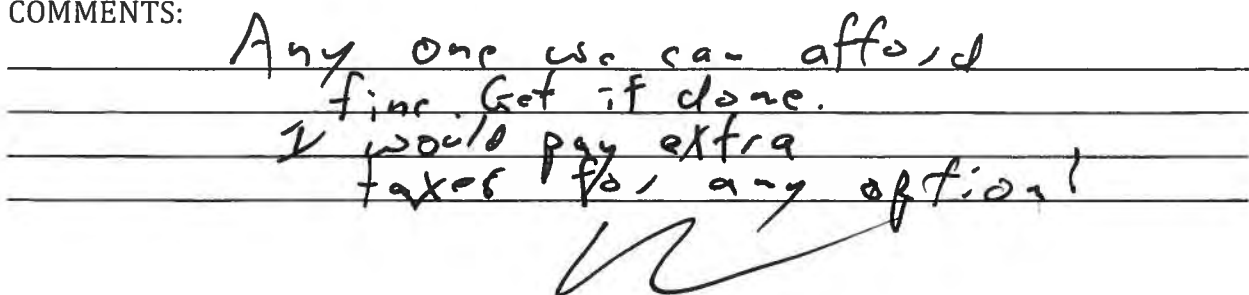 COMMENTS:
Any one we can afford
fine. Get it done.
I would pay extra
taxes for any option!